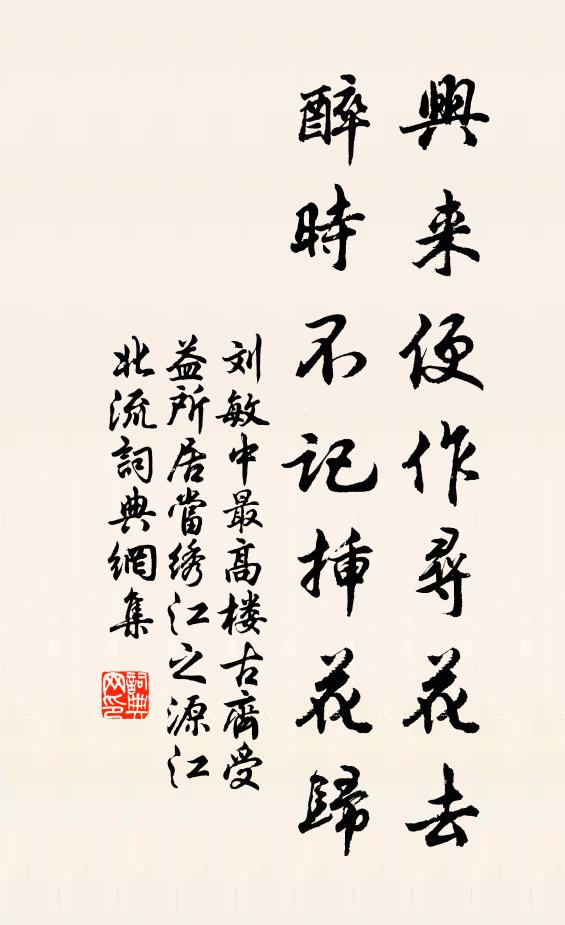 興来便作尋花去
醉時不記揷花歸
刘敏中最高楼古齊受
益所居當绣江之源江
北流詞典網集
詞典
网印